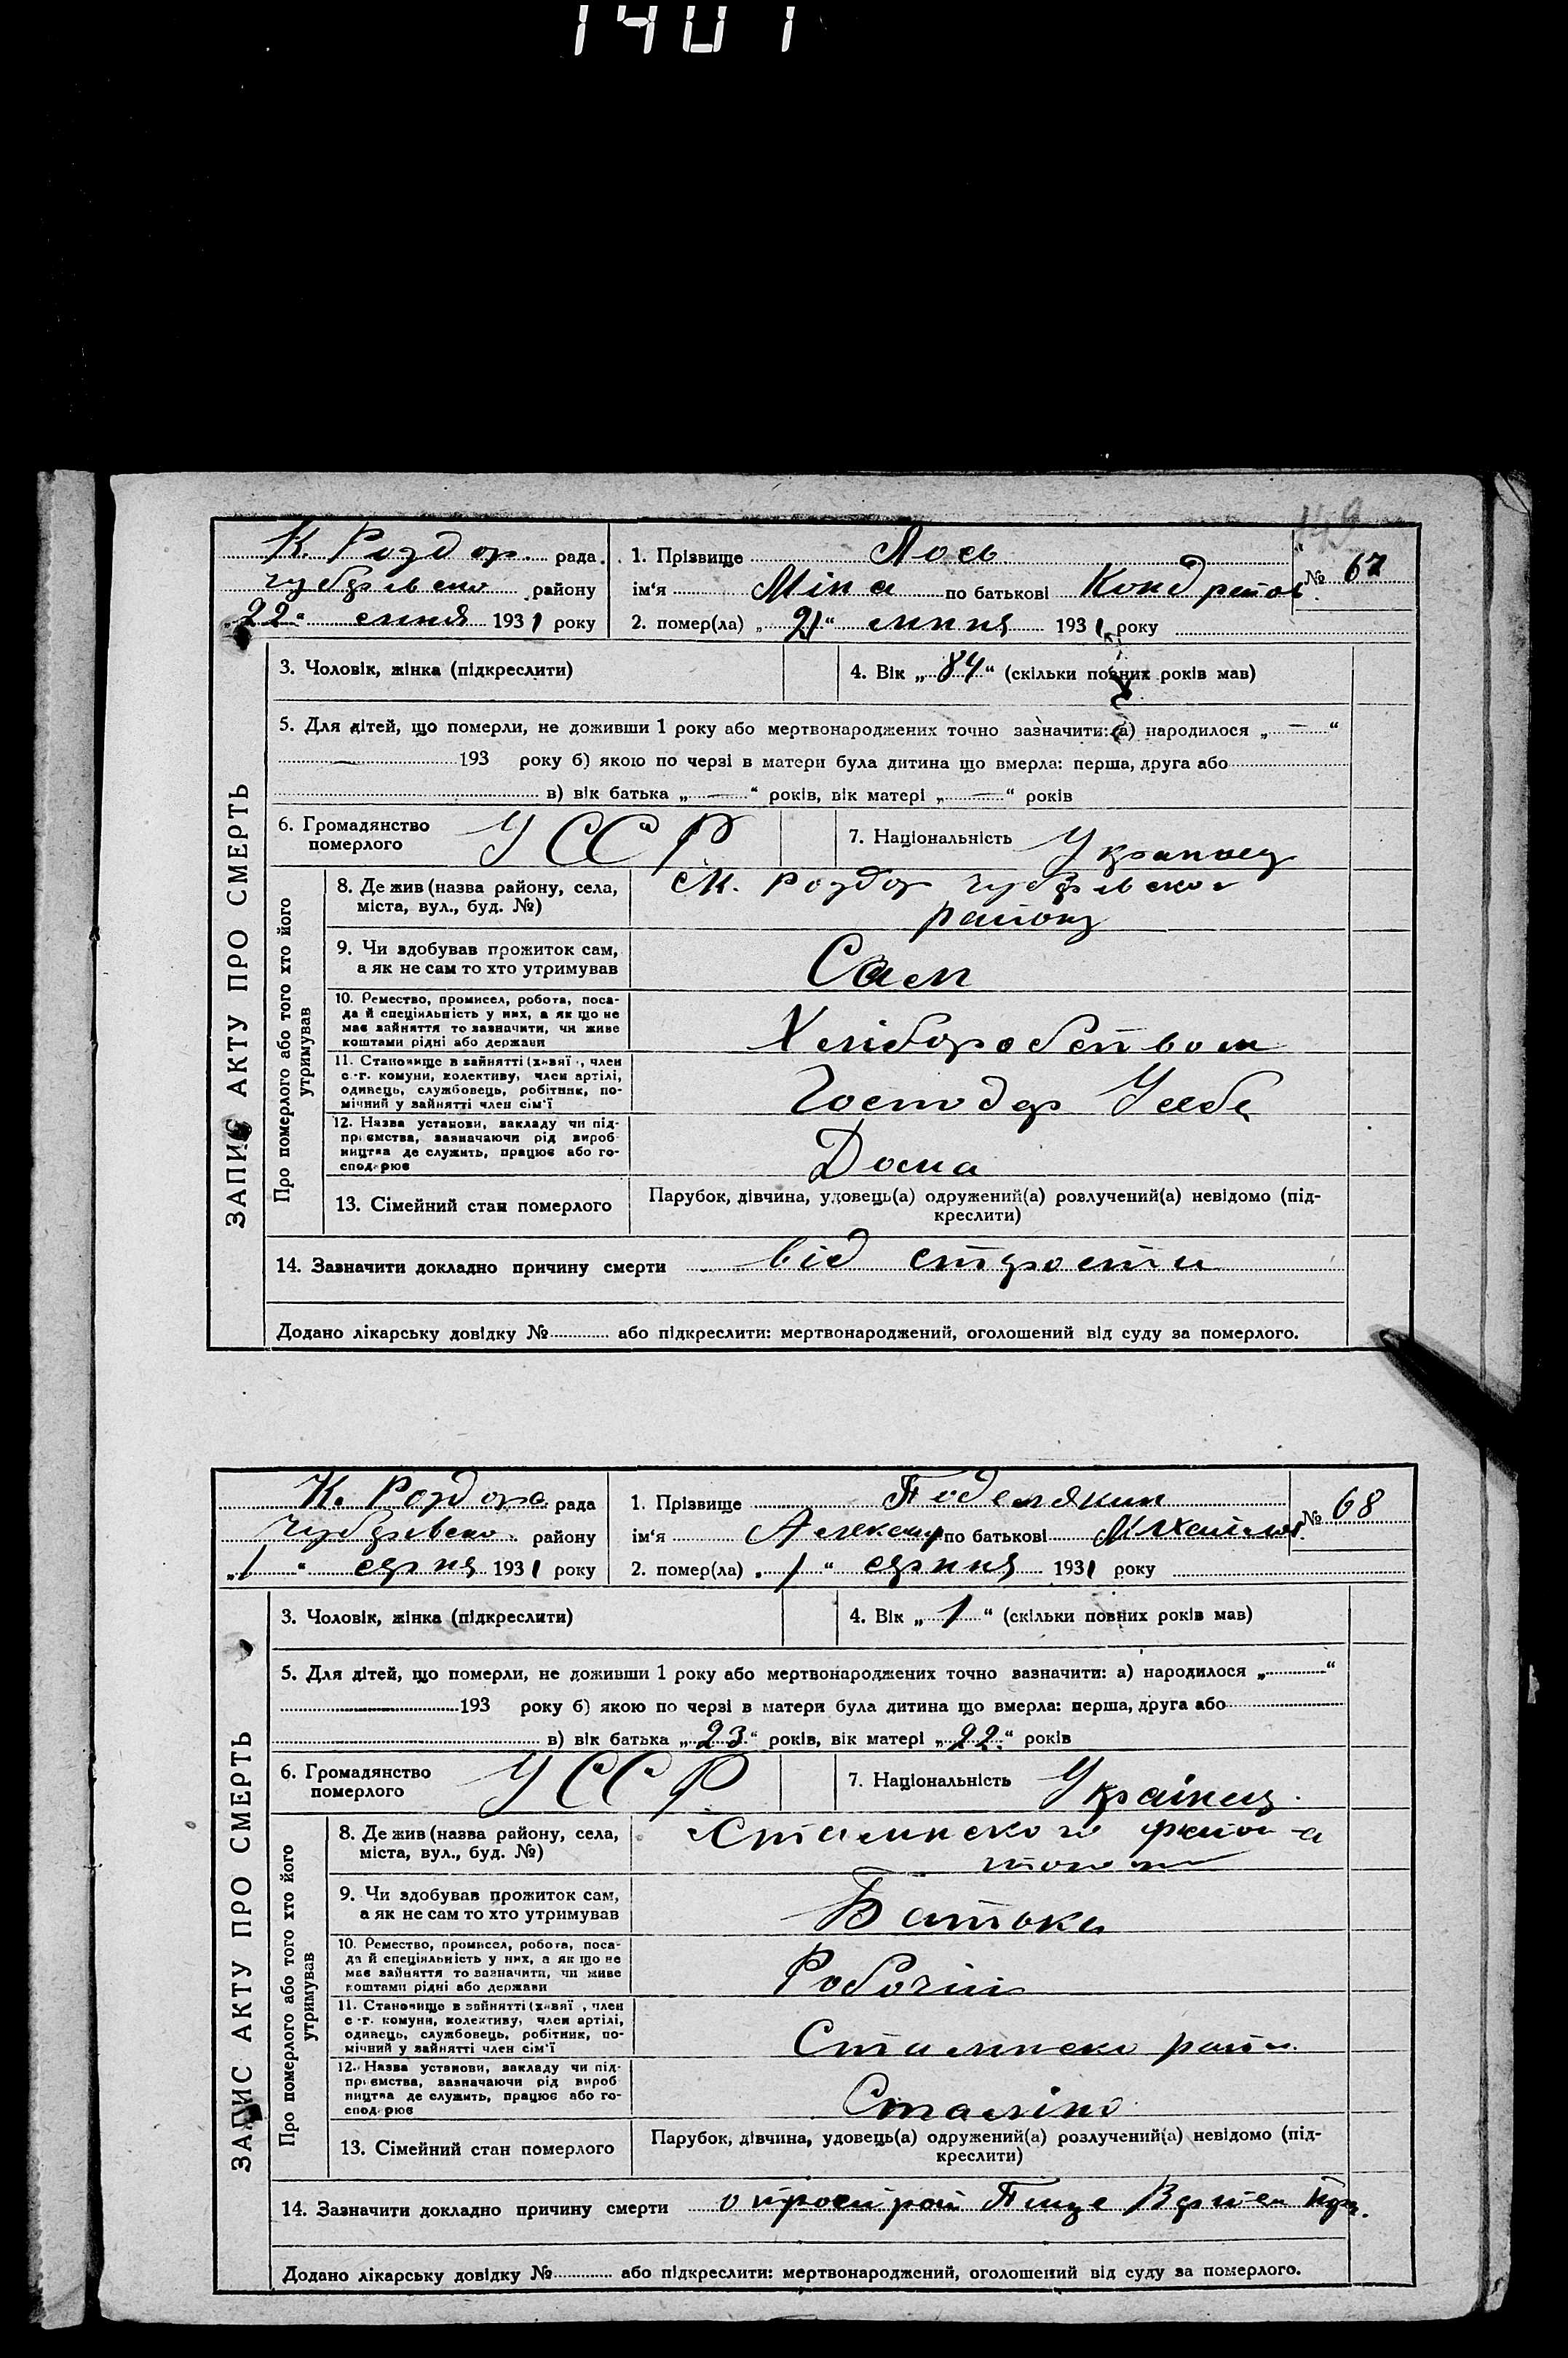 1401
149
К. Роздор. рада.
Чубарьвско району
„22“ липня 1931 року
1. Прізвище Лось
№ 67
ім'я Міна по батькові Кондратов.
2. помер(ла) „21“ липня 1931 року
3. Чоловік, жінка (підкреслити)
4. Вік „84“ (скільки повних років мав)
5. Для дітей, що померли, не доживши 1 року або мертвонароджених точно зазначити: а) народилося „—“
193 року б) якою по черзі в матери була дитина що вмерла: перша, друга або
в) вік батька „—“ років, вік матері „—“ років
6. Громадянство
померлого
УССР
7. Національність
Украпоец
8. Де жив (назва району, села,
міста, вул., буд. №)
Роздор Чубарьвског
району
9. Чи здобував прожиток сам,
а як не сам то хто утримував
Сам
10. Ремество, промисел, робота, поса-
да й спеціяльність у них, а як що не
має зайняття то зазначити, чи живе
коштами рідні або держави
Хліборобством
11. Становище в зайнятті (хазяї, член
с.-г. комуни, колективу, член артілі,
одинець, службовець, робітник, по-
мічний у зайнятті член сім'ї
Господар У себе
12. Назва установи, закладу чи під-
приємства, зазначаючи рід вироб
ництва де служить, працює або го-
сподарює
Дома
13. Сімейний стан померлого
Парубок, дівчина, удовець(а) одружений(а) розлучений(а) невідомо (під-
креслити)
14. Зазначити докладно причину смерти від старости
Додано лікарську довідку № або підкреслити: мертвонароджений, оголошений від суду за померлого.
ЗАПИС АКТУ ПРО СМЕРТЬ
Про померлого або того хто його
утримував
К. Роздора рада
Чубарьвско. району
„1“ серпня 1931 року
1. Прізвище
№ 68
ім'я Алексанр по батькові Михайлов.
2. помер(ла) „1“ серпня 1931 року
3. Чоловік, жінка (підкреслити)
4. Вік „1“ (скільки повних років мав)
5. Для дітей, що померли, не доживши 1 року або мертвонароджених точно зазначити: а) народилося „ “
193 року б) якою по черзі в матери була дитина що вмерла: перша, друга або
в) вік батька „23“ років, вік матері „22“ років
6. Громадянство
померлого
УССР
7. Національність
Українец.
8. Де жив (назва району, села,
міста, вул., буд. №)
Сталинского
9. Чи здобував прожиток сам,
а як не сам то хто утримував
Батька
10. Ремество, промисел, робота, поса-
да й спеціяльність у них, а як що не
має зайняття то зазначити, чи живе
коштами рідні або держави
Робочий
11. Становище в зайнятті (хазяї, член
с.-г. комуни, колективу, член артілі,
одинець, службовець, робітник, по-
мічний у зайнятті член сім'ї
Сталинско райн
12. Назва установи, закладу чи під-
приємства, зазначаючи рід вироб
ництва де служить, працює або го-
сподарює
Сталіно
13. Сімейний стан померлого
Парубок, дівчина, удовець(а) одружений(а) розлучений(а) невідомо (під-
креслити)
14. Зазначити докладно причину смерти
Додано лікарську довідку № або підкреслити: мертвонароджений, оголошений від суду за померлого.
ЗАПИС АКТУ ПРО СМЕРТЬ
Про померлого або того хто його
утримував